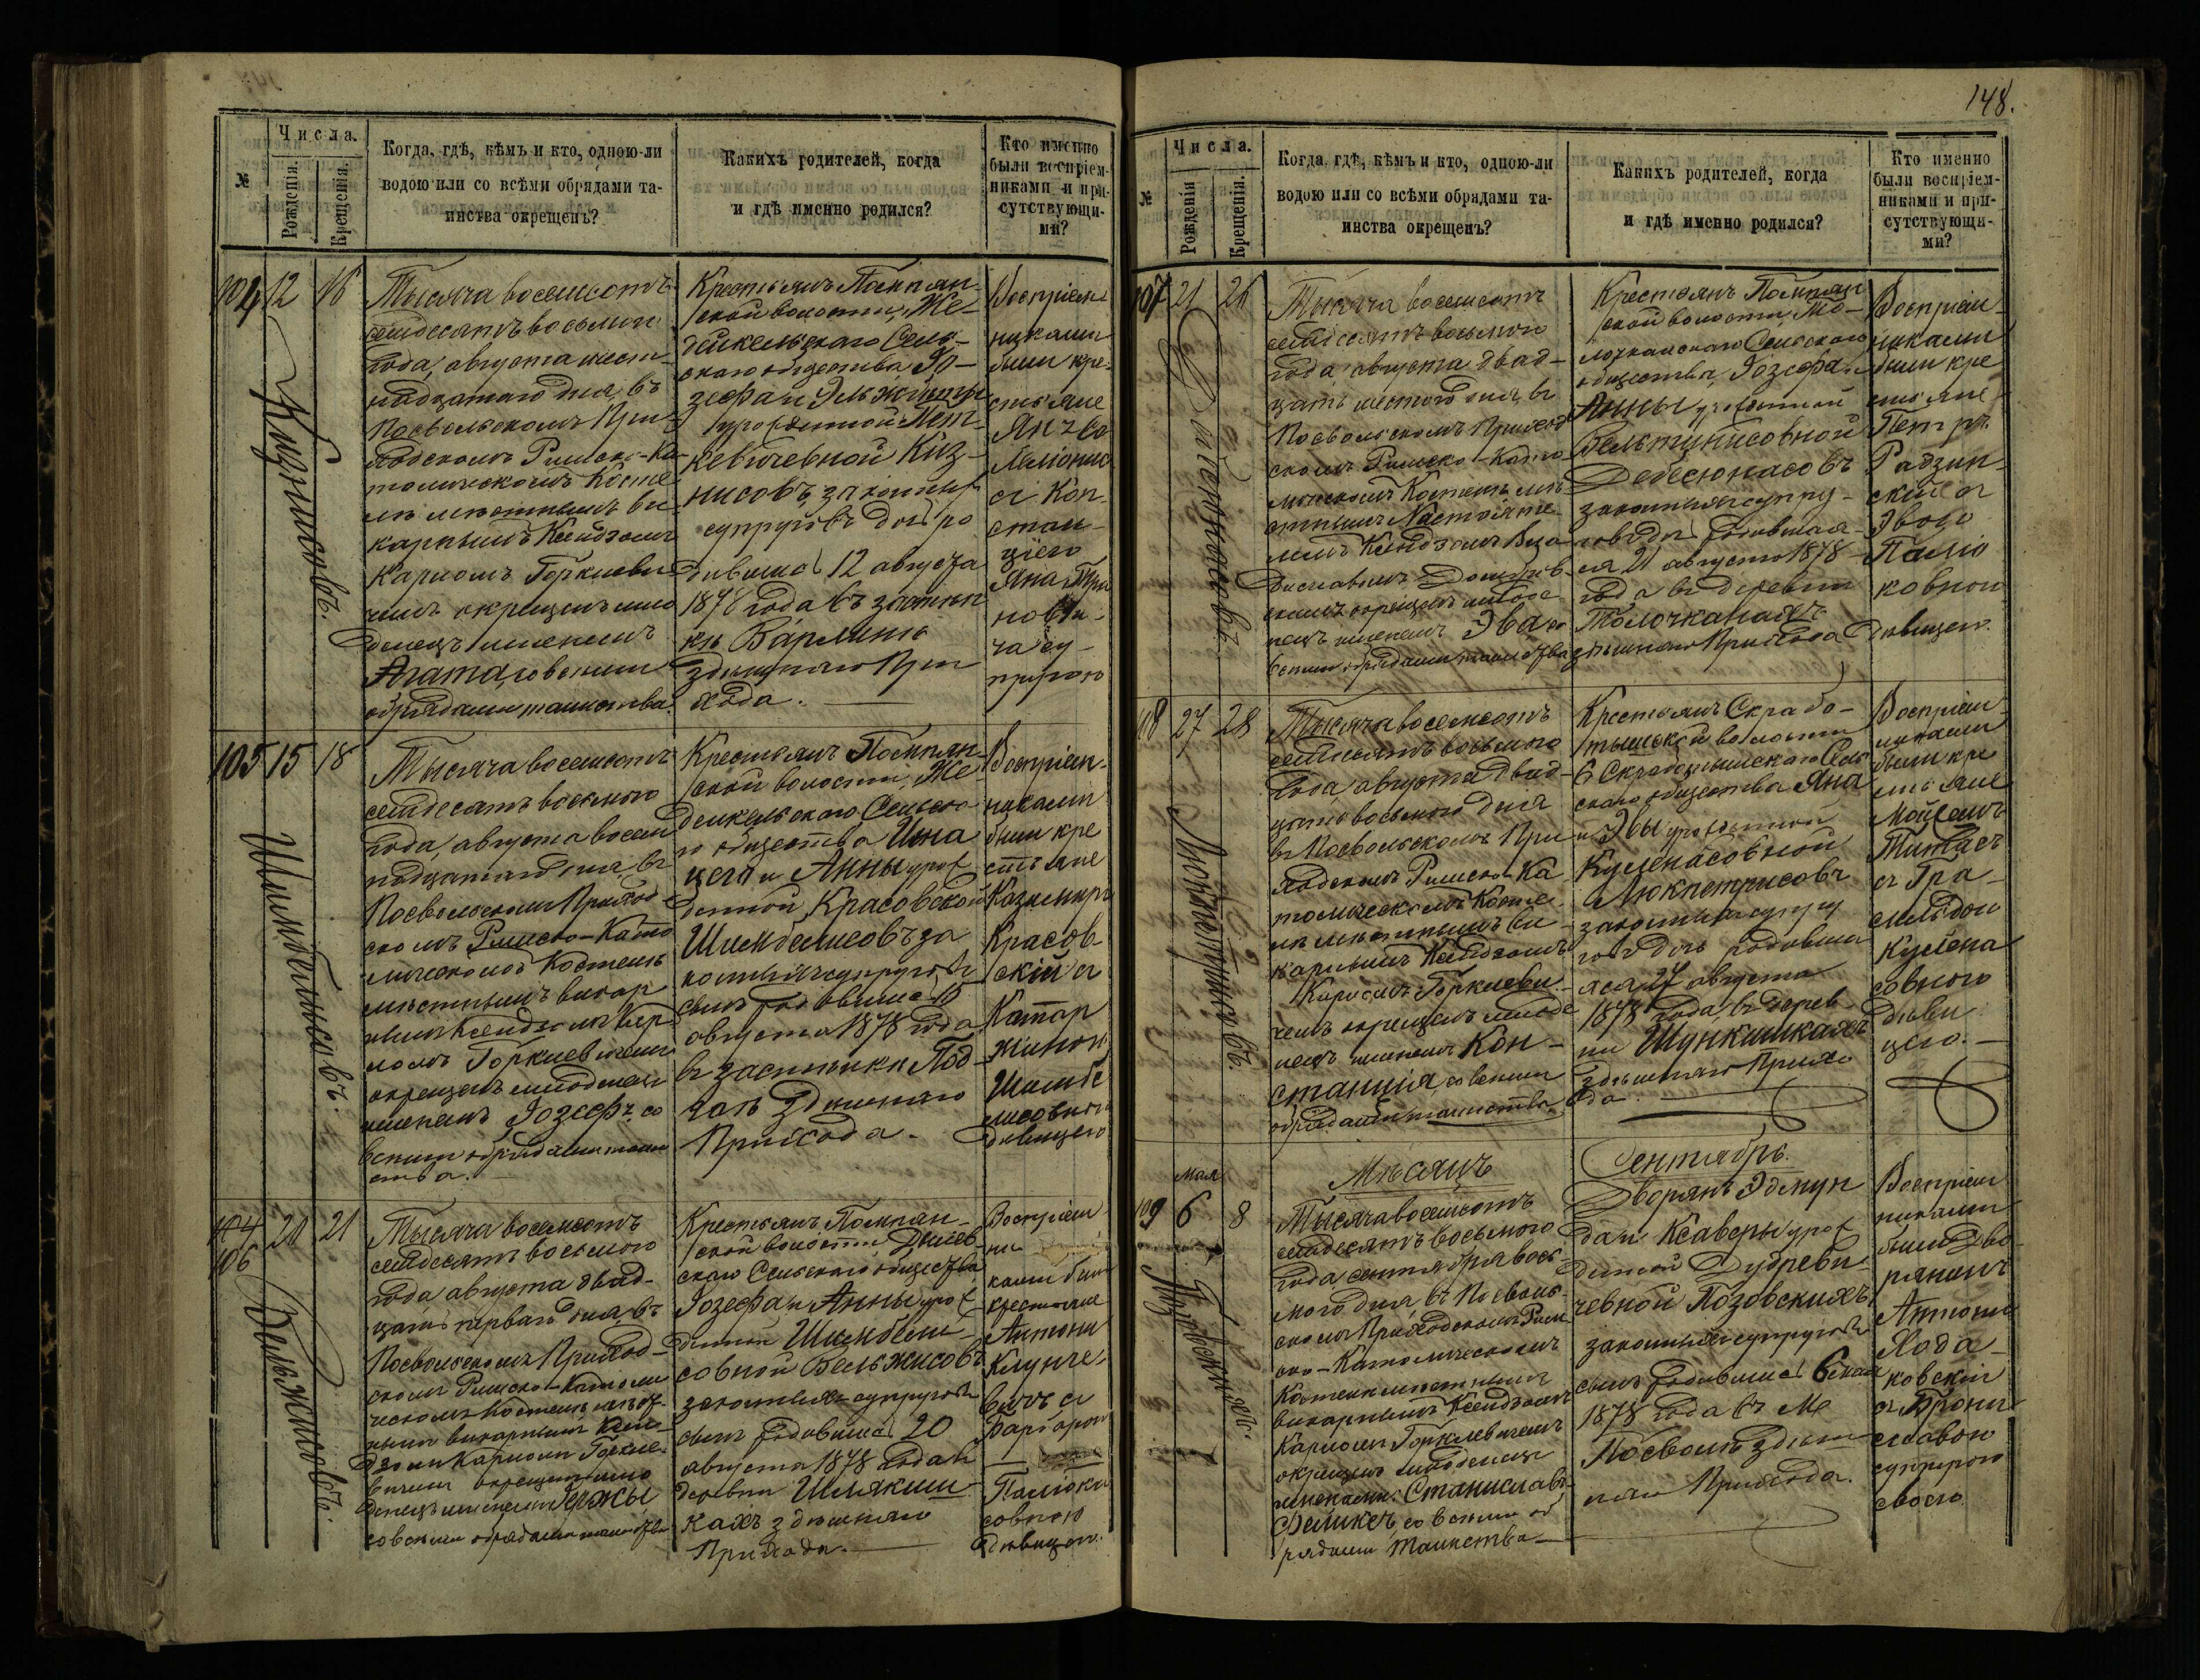 148.
№
Числа.
Рожденія.
Крещенія.
Когда, гдѣ, кѣмъ и кто, одною-ли
водою или со всѣми обрядами та-
инства окрещенъ?
Какихъ родителей, когда
и гдѣ именно родился?
Кто именно
были воспріем-
никами и при-
сутствующи-
ми?
104
12
16
Кизнисовъ.
Тысяча восемсотъ
семдесятъ восьмого
года, августа шест-
надцатаго дня, въ
Посвольскомъ При-
ходскомъ Римско-Ка-
толическомъ Косте
лѣ мѣстнымъ ви-
карнымъ Ксендзомъ
Каролемъ Горкеви-
чемъ окрещенъ мла
денецъ именемъ
Агата, со всѣми
обрядами таинства.
Крестьянъ Помпян-
ской волости, Же-
дейкельскаго Сель-
скаго общества Іо-
зефа и Эльжбеты
урожденной Пет-
кевичевной Киз-
нисовъ, законныхъ
супруговъ дочь ро
дившаяся 12 августа
1878 года въ застѣн
кѣ
здѣшняго При
хода.
Воспріем
никами
были кре
стьяне
Янъ
съ Кон-
стан-
цією
Яна
ча су-
пругою
105
15
18
Шимбелисовъ.
Тысяча восемсотъ
семдесятъ восьмого
года, августа восем
надцатаго дня, въ
Посвольскомъ Приход
скомъ Римско-Като
лическомъ Костелѣ
мѣстнымъ викар
нымъ Ксендзомъ Кар
ломъ Горкевичемъ
окрещенъ младенецъ
именемъ Іозефъ, со
всѣми обрядами таин
ства.
Крестьянъ Помпян-
ской волости, Же
дейкельскаго Сельска
го общества Игна
ція и Анны урож
денной Красовской
Шимбелисовъ за
конныхъ супруговъ
сынъ родившійся 15
августа 1878 года
въ застѣнкѣ Под
здѣшняго
Прихода.
Воспріем-
никами
были кре
стьяне
Казимиръ
Красов-
скій съ
Катар
жиною
Шимбе
лисовною
дѣвицею
104
106
20
21
Вельжисовъ.
Тысяча восемсотъ
семдесятъ восьмого
года августа двад-
цать перваго дня, въ
Посвольскомъ Приход-
скомъ Римско-Католи
ческомъ Костелѣ мѣст
нымъ викарнымъ Ксен
дзомъ Каролемъ Горке-
вичемъ окрещенъ мла
денецъ именемъ Ержы
со всѣми обрядами таинства
Крестьянъ Помпян-
ской волости
скаго Сельскаго общества
Іозефа и Анны урож
денной Шимбели-
совной Вельжисовъ
законныхъ супруговъ
сынъ родившійся 20
августа 1878 года въ
деревни Шлякиш
кахъ здѣшняго
Прихода.
Воспріем
ни
ками были
крестьяне
Антони
Клунге-
вичъ съ
Барбарою
Палюка
совною
дѣвицею.
№
Числа.
Рожденія
Крещенія.
Когда, гдѣ, кѣмъ и кто, одною-ли
водою или со всѣми обрядами та-
инства окрещенъ?
Какихъ родителей, когда
и гдѣ именно родился?
Кто именно
были воспріем-
никами и при-
сутствующи-
ми?
107
21
26
Дебесюнасовъ.
Тысяча восемсотъ
семдесятъ восьмого
года, августа двад-
цать шестого дня, въ
Посвольскомъ Приход
скомъ Римско-Като-
лическомъ Костелѣ мѣ
стнымъ Настояте-
лемъ Ксендзомъ Вла-
диславомъ
скимъ окрещенъ младе
нецъ именемъ Эва со
всѣми обрядами таинства
Крестьянъ Помпян
ской волости,
Сельскаго
общества, Іозефа и
Анны урожденной
Дебесюнасовъ
законныхъ супру-
говъ дочь родившая-
ся 21 августа 1878
года въ деревни
Толочканахъ
здѣшняго Прихода
Воспріем-
никами
были кре
стьяне
Петръ
Радзин-
скій съ
Эвою
Палю
ковною
дѣвицею.
108
27
28
Люкпетрисовъ.
Тысяча восемсотъ
семдесятъ восьмого
года, августа двад-
цать восьмого дня
въ Посвольскомъ При
ходскомъ Римско-Ка
толическомъ Косте-
лѣ мѣстнымъ ви-
карнымъ Ксендзомъ
Каролемъ Горкеви-
чемъ окрещенъ младе
нецъ именемъ Кон-
станція, со всѣми
обрядами таинства.
Крестьянъ Скрабо-
тышской волости
Скработышскаго Сель
скаго общества Яна
и Эвы урожденной
Куленасовной
Люкпетрисовъ
законныхъ супру
говъ дочь родивша
яся 27 августа
1878 года, въ дерев-
ни Шункишкахъ
здѣшняго Прихо
да.
Воспріем-
никами
были кре
стьяне
съ Гра-
сильдою
Кулена
совною
дѣви
цею.
Мѣсяцъ
Сентябрь.
109
мая
6
8
Позовскихъ.
Тысяча восемсотъ
семдесятъ восьмого
года сентября вось-
мого дня, въ Посволь-
скомъ Приходскомъ Рим
ско-Католическомъ
Костелѣ мѣстнымъ
викарнымъ Ксендзомъ
Каролемъ Горкевичемъ
окрещенъ младенецъ
именами: Станиславъ
Феликсъ, со всѣми об
рядами таинства
Дворянъ Эдмун
да и Ксаверы урож
денной Дубреви-
чевной Позовскихъ
законныхъ супруговъ
сынъ родившійся 6 мая
1878 года въ М
Посволѣ здѣш
няго Прихода.
Воспріем
никами
были Дво-
рянинъ
Антоній
Хода-
ковскій
съ Брони
славою
супругою
своею.